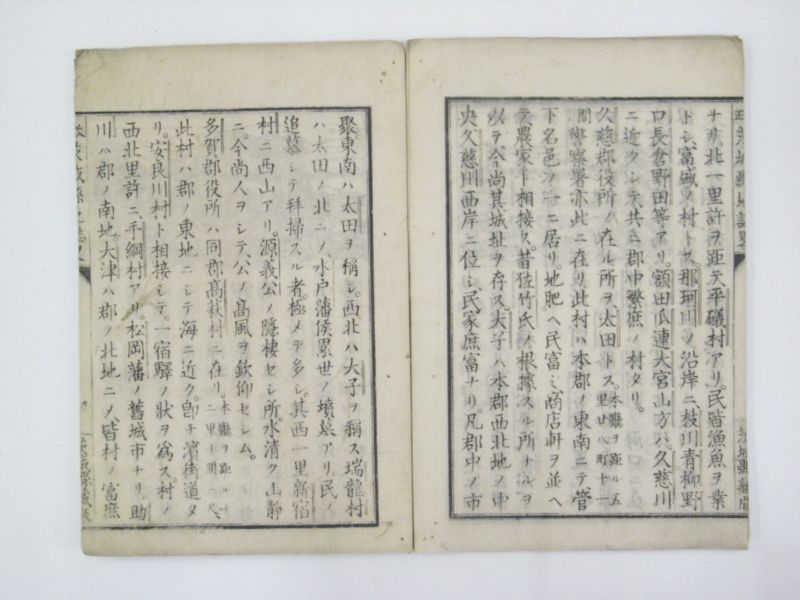 ナリ。北一里許ヲ距テ平磯村アリ。民皆漁魚ヲ業
トシ、富盛ノ村トス。那珂川ノ沿岸ニ枝川青柳野
口長倉野田等アリ。額田瓜連大宮山方ハ、久慈川
ニ近クシテ、共ニ郡中繁庶ノ村タリ。
久慈郡役所ノ在ル所ヲ太田トス。本廳ヲ距ル五里廿八町十一間
警察署亦此ニ在リ此村ハ本郡ノ東南ニテ管
下名邑ノ一ニ居リ。地肥ヘ民富ミ商店軒ヲ並ヘ
テ農家ト相接ス。昔佐竹氏ノ根據スル所ナルヲ
以テ今尚其城址ヲ存ス。大子ハ本郡西北地ノ中
央久慈川西岸ニ位シ、民家庶富ナリ。凡郡中ノ市
聚東南ハ太田ヲ稱シ。西北ハ大子ヲ稱ス瑞龍村
ハ太田ノ北ニノ、水戸藩侯累世ノ墳墓アリ民ノ
追慕シテ拜掃スル者。極メテ多シ。其西一里新宿
村ニ西山アリ。源義公ノ隱棲セシ所水清ク山靜
ニ。今尚人ヲシテ、公ノ高風ヲ欽仰セシム。
多賀郡役所ハ同郡高萩村ニ在リ。本廳ヲ距ル十
此村ハ郡ノ東地ニシテ海ニ近ク。卽チ濱街道タ
リ。安良川村ト相接シテ。一宿驛ノ狀ヲ爲ス。村ノ
西北里許ニ、手綱村アリ。松岡藩ノ舊城市ナリ。助
川ハ郡ノ南地。大津ハ郡ノ北地ニノ皆村ノ富庶